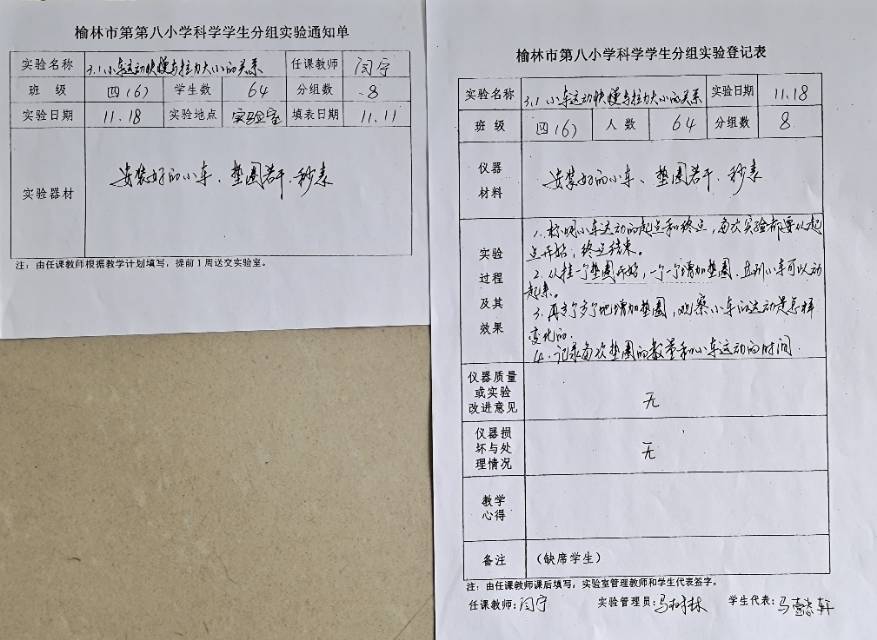 榆林市第第八小学科学学生分组实验通知单
实验名称 3.1小车运动快慢与拉力大小的关系 任课教师 闫宁
班 级 四(6) 学生数 64 分组数 8
实验日期 11.18 实验地点 实验室 填表日期 11.11
实验器材 安装好的小车、垫圈若干、秒表
注:由任课教师根据教学计划填写,提前1周送交实验室。
榆林市第八小学科学学生分组实验登记表
实验名称 3.1小车运动快慢与拉力大小的关系 实验日期 11.18
班 级 四(6) 人 数 64 分组数 8
仪器
材料
安装好的小车、垫圈若干、秒表
实验
过程
及其
效果
1.标明小车运动的起点和终点,每次实验都要从起
点开始,终点结束。
2.从挂一个垫圈开始,一个一个增加垫圈,直到小车可以动
起来。
3.再多个多个地增加垫圈,观察小车的运动是怎样
变化的.
4.记录每次垫圈的数量和小车运动的时间.
仪器质量
或实验
改进意见
无
仪器损
坏与处
理情况
无
教学
心得
备注 (缺席学生)
注:由任课教师课后填写,实验室管理教师和学生代表签字。
任课教师:闫宁 实验管理员:马 林 学生代表:马 轩